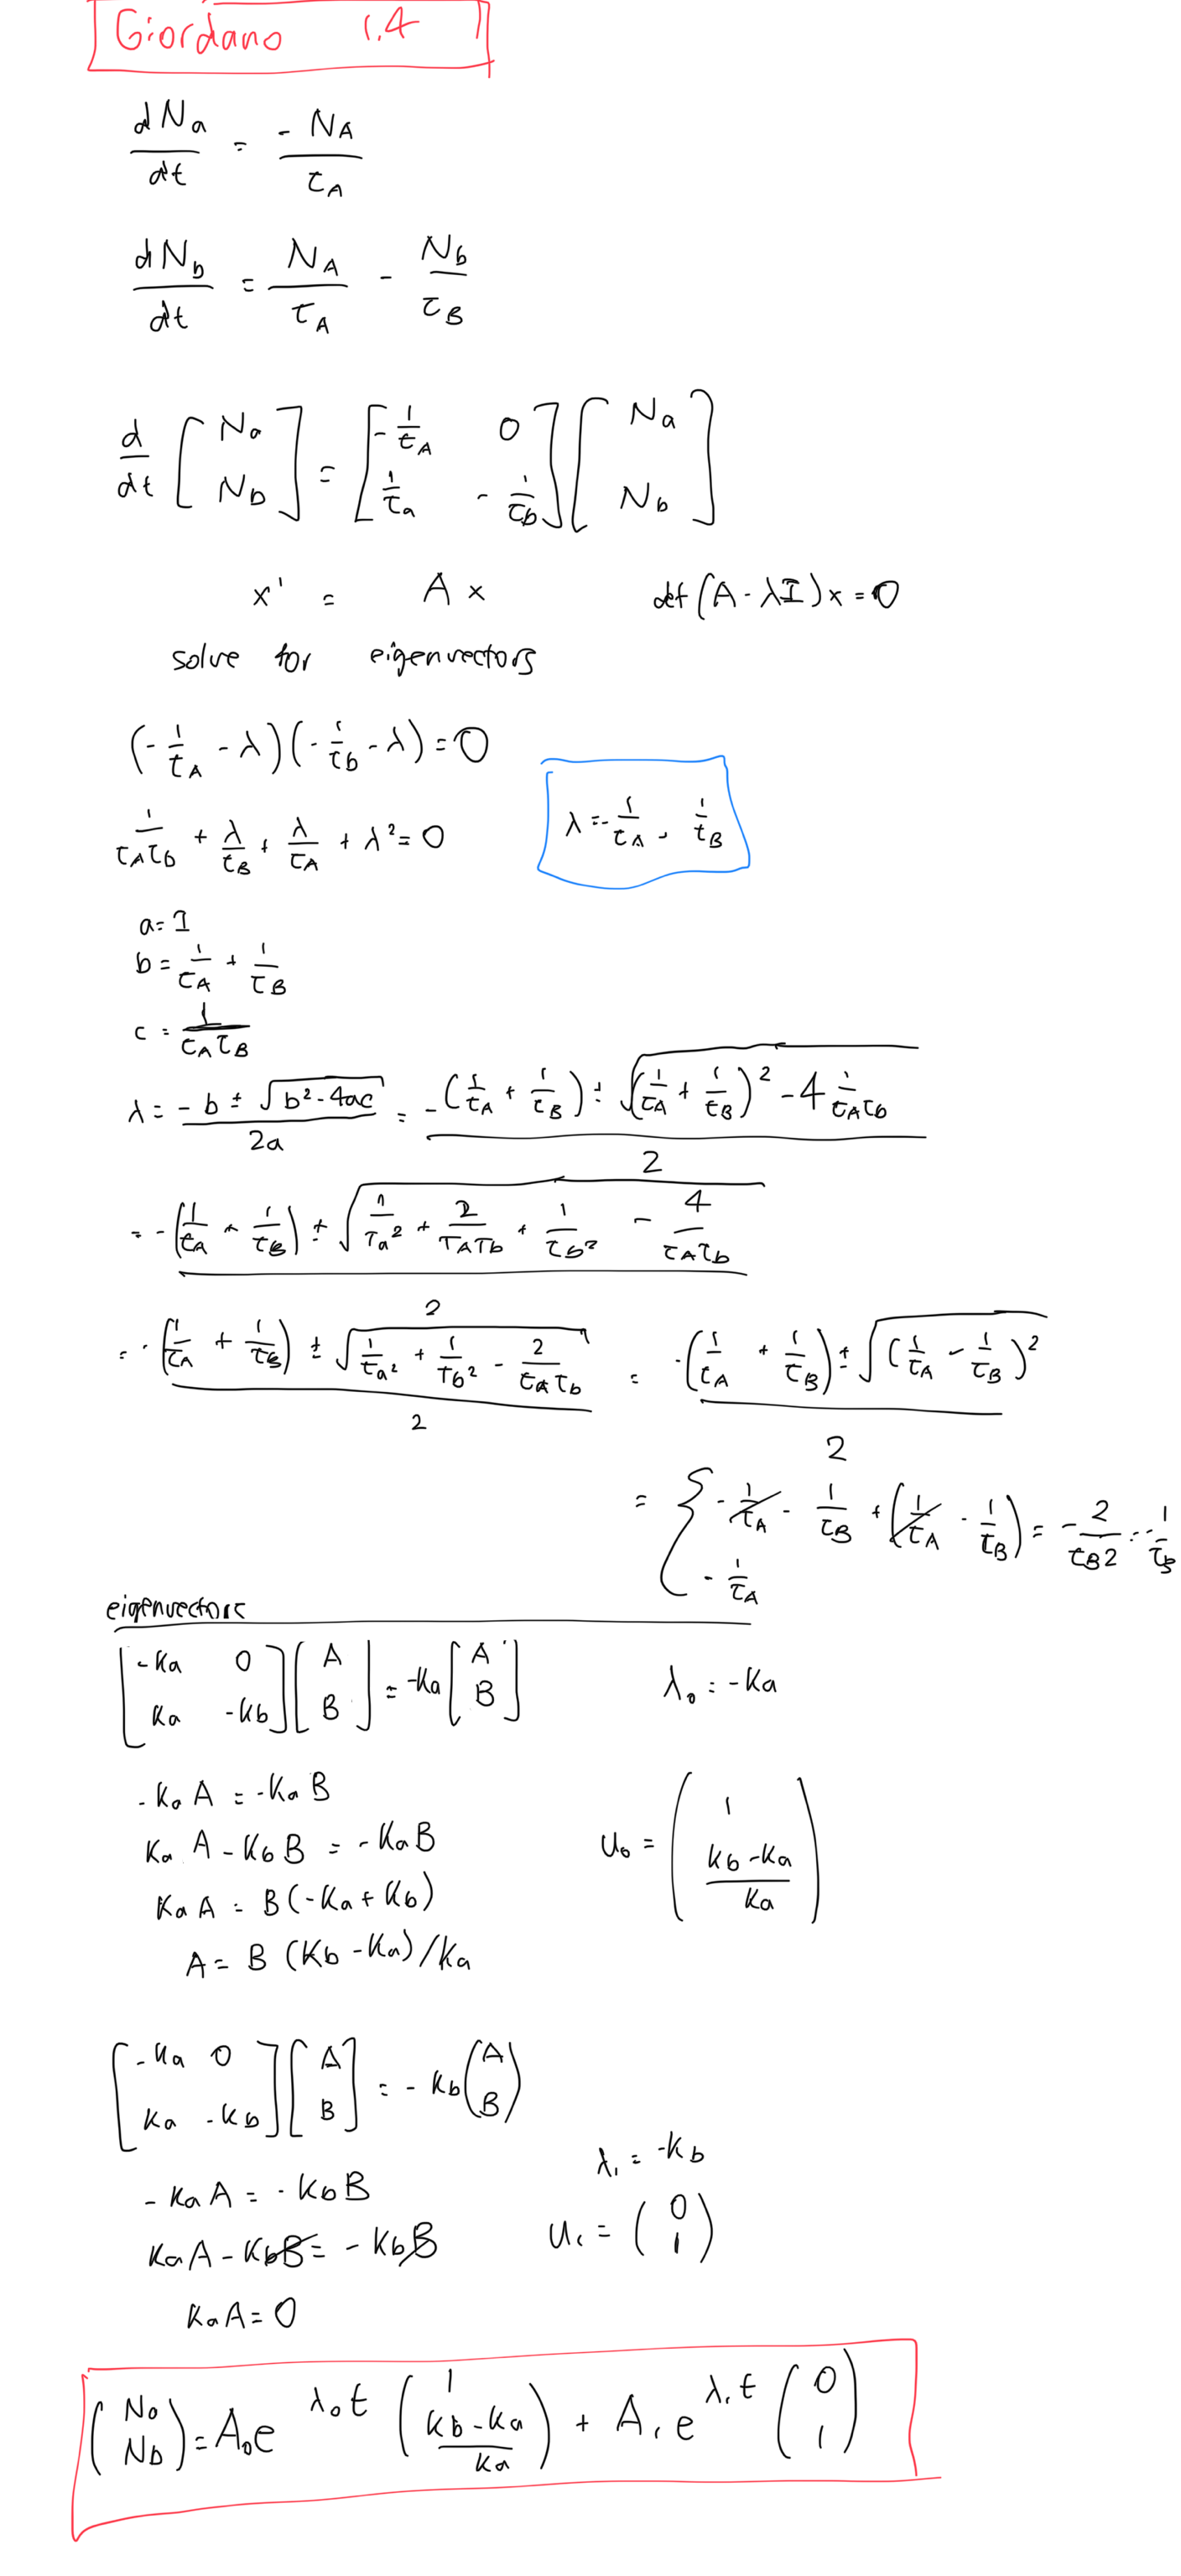 Giordano 1.4
dNa/dt = -NA/τA
dNb/dt = NA/τA - Nb/τB
d/dt [Na Nb] = [-1/τA 0 1/τa -1/τb] [Na Nb]
x' = Ax det(A-λI)x=0
solve for eigenvectors
(-1/τA - λ)(-1/τb - λ)=0
1/τAτb + λ/τB + λ/τA + λ²=0
λ=-1/τA, 1/τB
a=1
b=1/τA + 1/τB
c=1/τAτB
λ= (-b ± √(b²-4ac))/2a = (-(1/τA + 1/τB) ± √((1/τA + 1/τB)² - 4 1/τAτb))/2
= (-(1/τA + 1/τB) ± √(1/τa² + 2/τAτb + 1/τb² - 4/τAτb))/2
= (-(1/τA + 1/τB) ± √(1/τa² + 1/τb² - 2/τAτb))/2 = (-(1/τA + 1/τB) ± √((1/τA - 1/τB)²))/2
= { -1/τA - 1/τB + (1/τA - 1/τB) = -2/τB2 = -1/τB
-1/τA
eigenvectors
[-Ka 0 Ka -Kb] [A B] = -Ka [A B] λ₀ = -Ka
-KaA = -KaB
KaA - KbB = -KaB
u₀ = (1 (Kb-Ka)/Ka)
KaA = B(-Ka+Kb)
A = B(Kb-Ka)/Ka
[-Ka 0 Ka -Kb] [A B] = -Kb (A B)
λ₁ = -Kb
-KaA = -KbB
KaA - KbB = -KbB
u₁ = (0 1)
KaA = 0
(N₀ Nb) = A₀e^λ₀t (1 (Kb-Ka)/Ka) + A₁e^λ₁t (0 1)